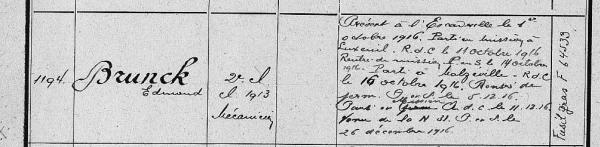 1194
Brunck
Edmond
2e cl
cl 1913
Mécanicien
Présent à l'Escadrille le 1er
octobre 1916. Parti en mission à
Luxeuil. R.d.C le 11 octobre 1916
Rentre de mission le 14 octobre
1916. Parti à Malzéville. R.d.C
le 16 octobre 1916. Rentré de
perm. le 5.12.16.
Parti en mission O.d.C. le 11.12.16.
Venu de la N
26 décembre 1916.
Fusil gras F 64539